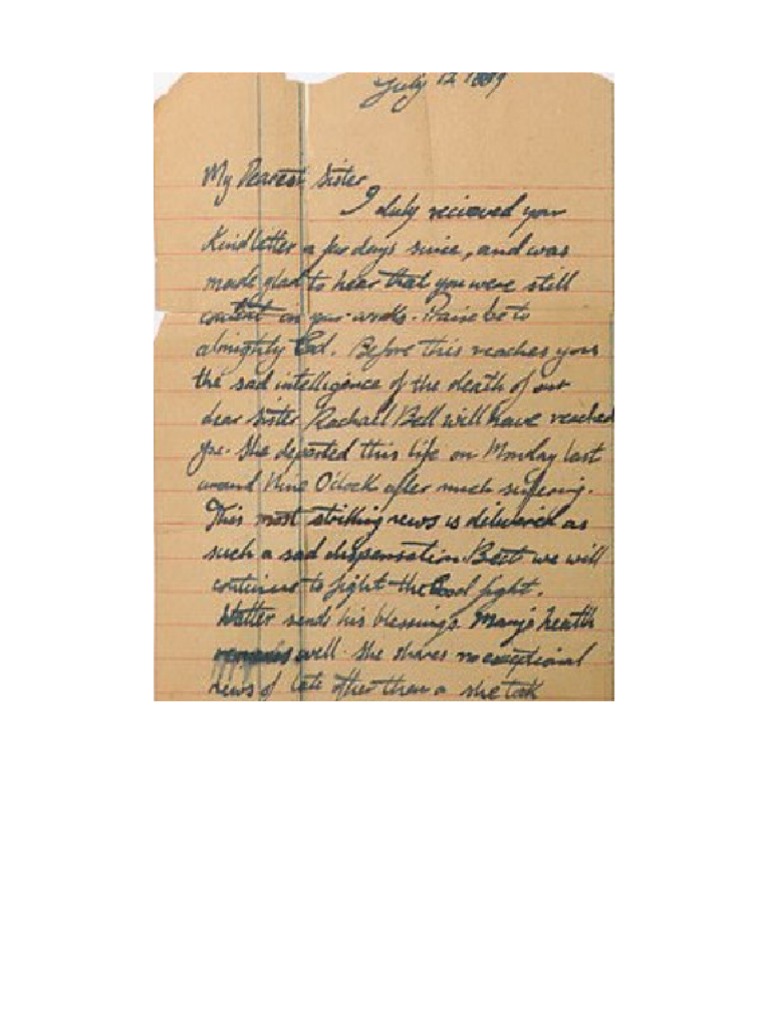 July 12 1889
My Dearest Sister
I duly recieved your
Kind letter a few days since, and was
made glad to hear that you were still
content in your works. Praise be to
almighty God. Before this reaches you
the sad intelligence of the death of our
dear sister Rachall Bell will have reached
you. She departed this life on Monday last
around Nine O'clock after much suffering.
This most striking news is delivered as
such a sad dispensation But we will
continue to fight the Good fight.
Walter sends his blessings. Mary's health
remains well. She shares no exceptional
news of late other than a she took